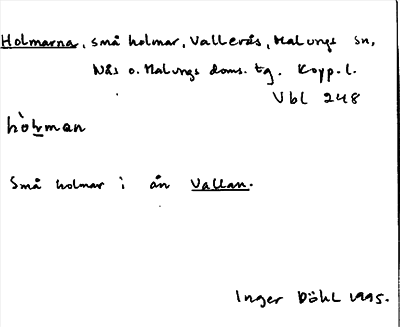 Holmarna, små holmar, Vallerås, Malungs sn,
Nås o. Malungs doms. tg. Kopp. l.
Vbl 248
hòḷman
Små holmar i ån Vallan.
Inger Döhl 1995.